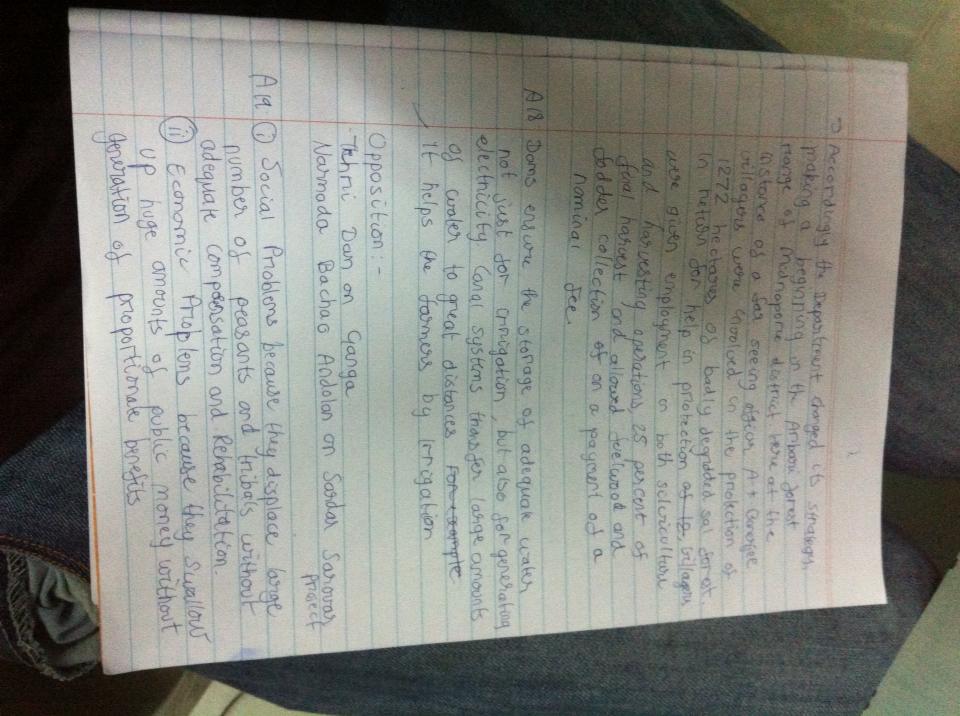 → Accordingly the Department changed its strategy,
making a beginning in the Arabari forest
range of Midnapore district. Here at the
instance of a far seeing officer A.K Banerjee
villagers were involved in the protection of
1272 hectares of badly degraded sal forest.
In return for help in protection of 12, villagers
were given employment in both silviculture
and harvesting operations, 25 percent of
final harvest and allowed fuelwood and
fodder collection of on a payment of a
nominal fee.
A18 Dams ensure the storage of adequate water
not just for irrigation, but also for generating
electricity Canal systems transfer large amounts
of water to great distances For example
It helps the farmers by irrigation
Oppositon :-
- Tehri Dam on Ganga
Narmada Bachao Andolan on Sardar Sarovar
Project
A19 (i) Social Problems because they displace large
number of peasants and tribals without
adequate compensation and Rehabilitation.
(ii) Economic Problems because they swallow
up huge amounts of public money without
generation of proportionate benefits